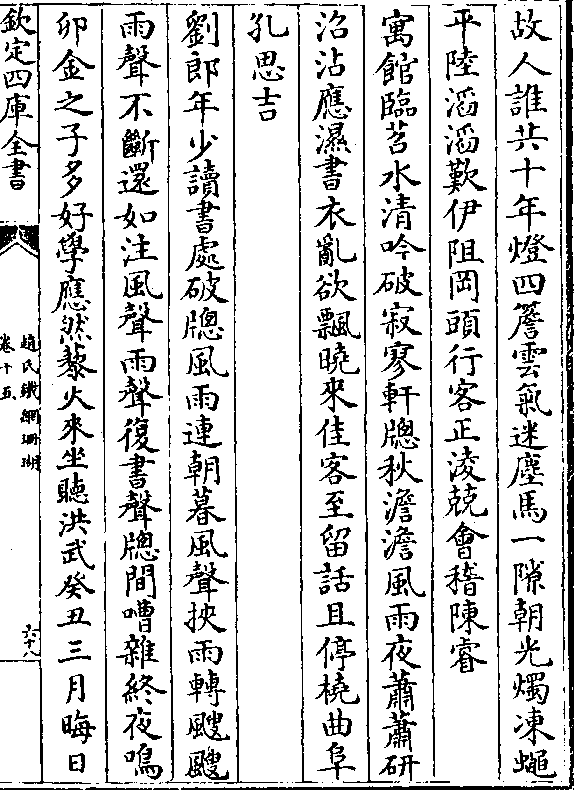 故人誰共十年燈四簷雲氣迷塵馬一隙朝光燭凍蠅
平陸滔滔歎伊阻岡頭行客正淩兢會稽陳睿
寓館臨苕水清吟破寂寥軒牕秋澹澹風雨夜蕭蕭研
沿沾應濕書衣亂欲飄曉來佳客至留話且停橈曲阜
孔思吉
劉郎年少讀書處破牕風雨連朝暮風聲挾雨轉颼颼
雨聲不斷還如注風聲雨聲復書聲牕間嘈雜終夜鳴
卯金之子多好學應然藜火來坐聽洪武癸丑三月晦日
欽定四庫全書
趙氏鐵網珊瑚
卷十五
六十八